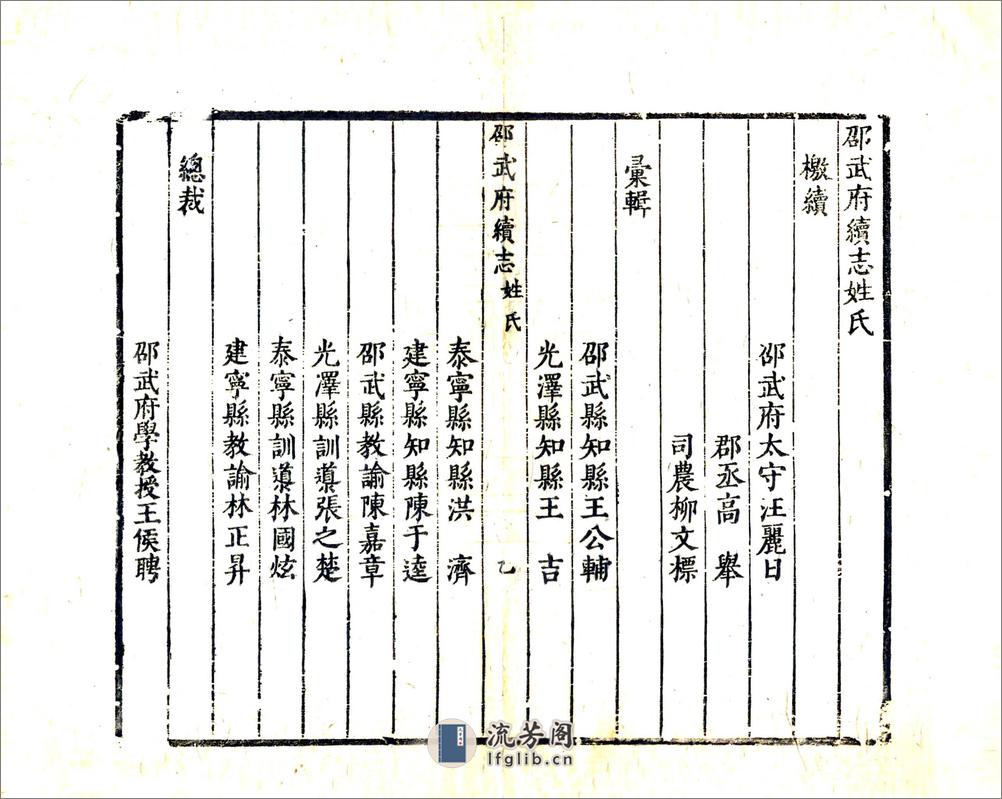 邵武府續志姓氏
檄續
邵武府太守汪麗日
郡丞高　舉
司農柳文標
彙輯
邵武縣知縣王公輔
光澤縣知縣王　吉
邵武府續志姓氏　乙
泰寧縣知縣洪　濟
建寧縣知縣陳于逵
邵武縣教諭陳嘉章
光澤縣訓導張之楚
泰寧縣訓導林國炫
建寧縣教諭林正昇
總裁
邵武府學教授王侯聘
流芳阁
lfglib.cn